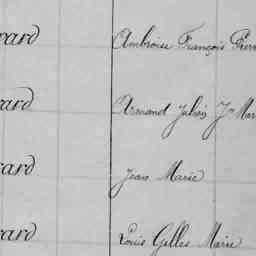 ard Ambroise François Pierr
ard Armand Julien Jn Mar
ard Jean Marie
ard Louis Gilles Marie